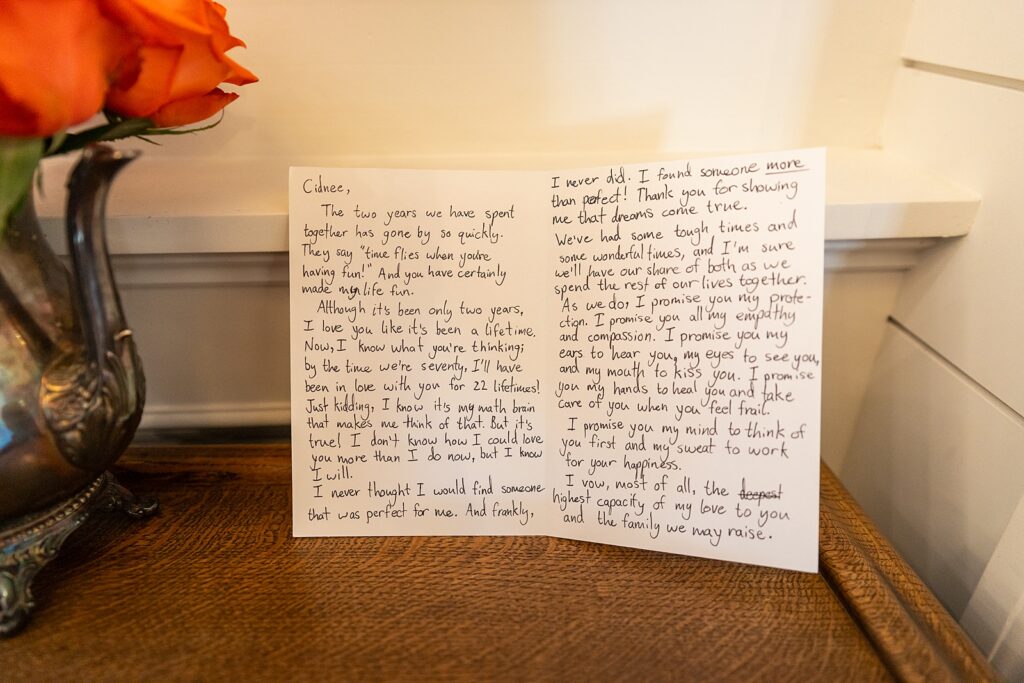 Cidnee,
The two years we have spent
together has gone by so quickly.
They say "time flies when you're
having fun!" And you have certainly
made my life fun.
Although it's been only two years,
I love you like it's been a lifetime.
Now, I know what you're thinking;
by the time we're seventy, I'll have
been in love with you for 22 lifetimes!
Just kidding, I know it's my math brain
that makes me think of that. But it's
true! I don't know how I could love
you more than I do now, but I know
I will.
I never thought I would find someone
that was perfect for me. And frankly,
I never did. I found someone more
than perfect! Thank you for showing
me that dreams come true.
We've had some tough times and
some wonderful times, and I'm sure
we'll have our share of both as we
spend the rest of our lives together.
As we do, I promise you my prote-
ction. I promise you all my empathy
and compassion. I promise you my
ears to hear you, my eyes to see you,
and my mouth to kiss you. I promise
you my hands to heal you and take
care of you when you feel frail.
I promise you my mind to think of
you first and my sweat to work
for your happiness.
I vow, most of all, the deepest
highest capacity of my love to you
and the family we may raise.